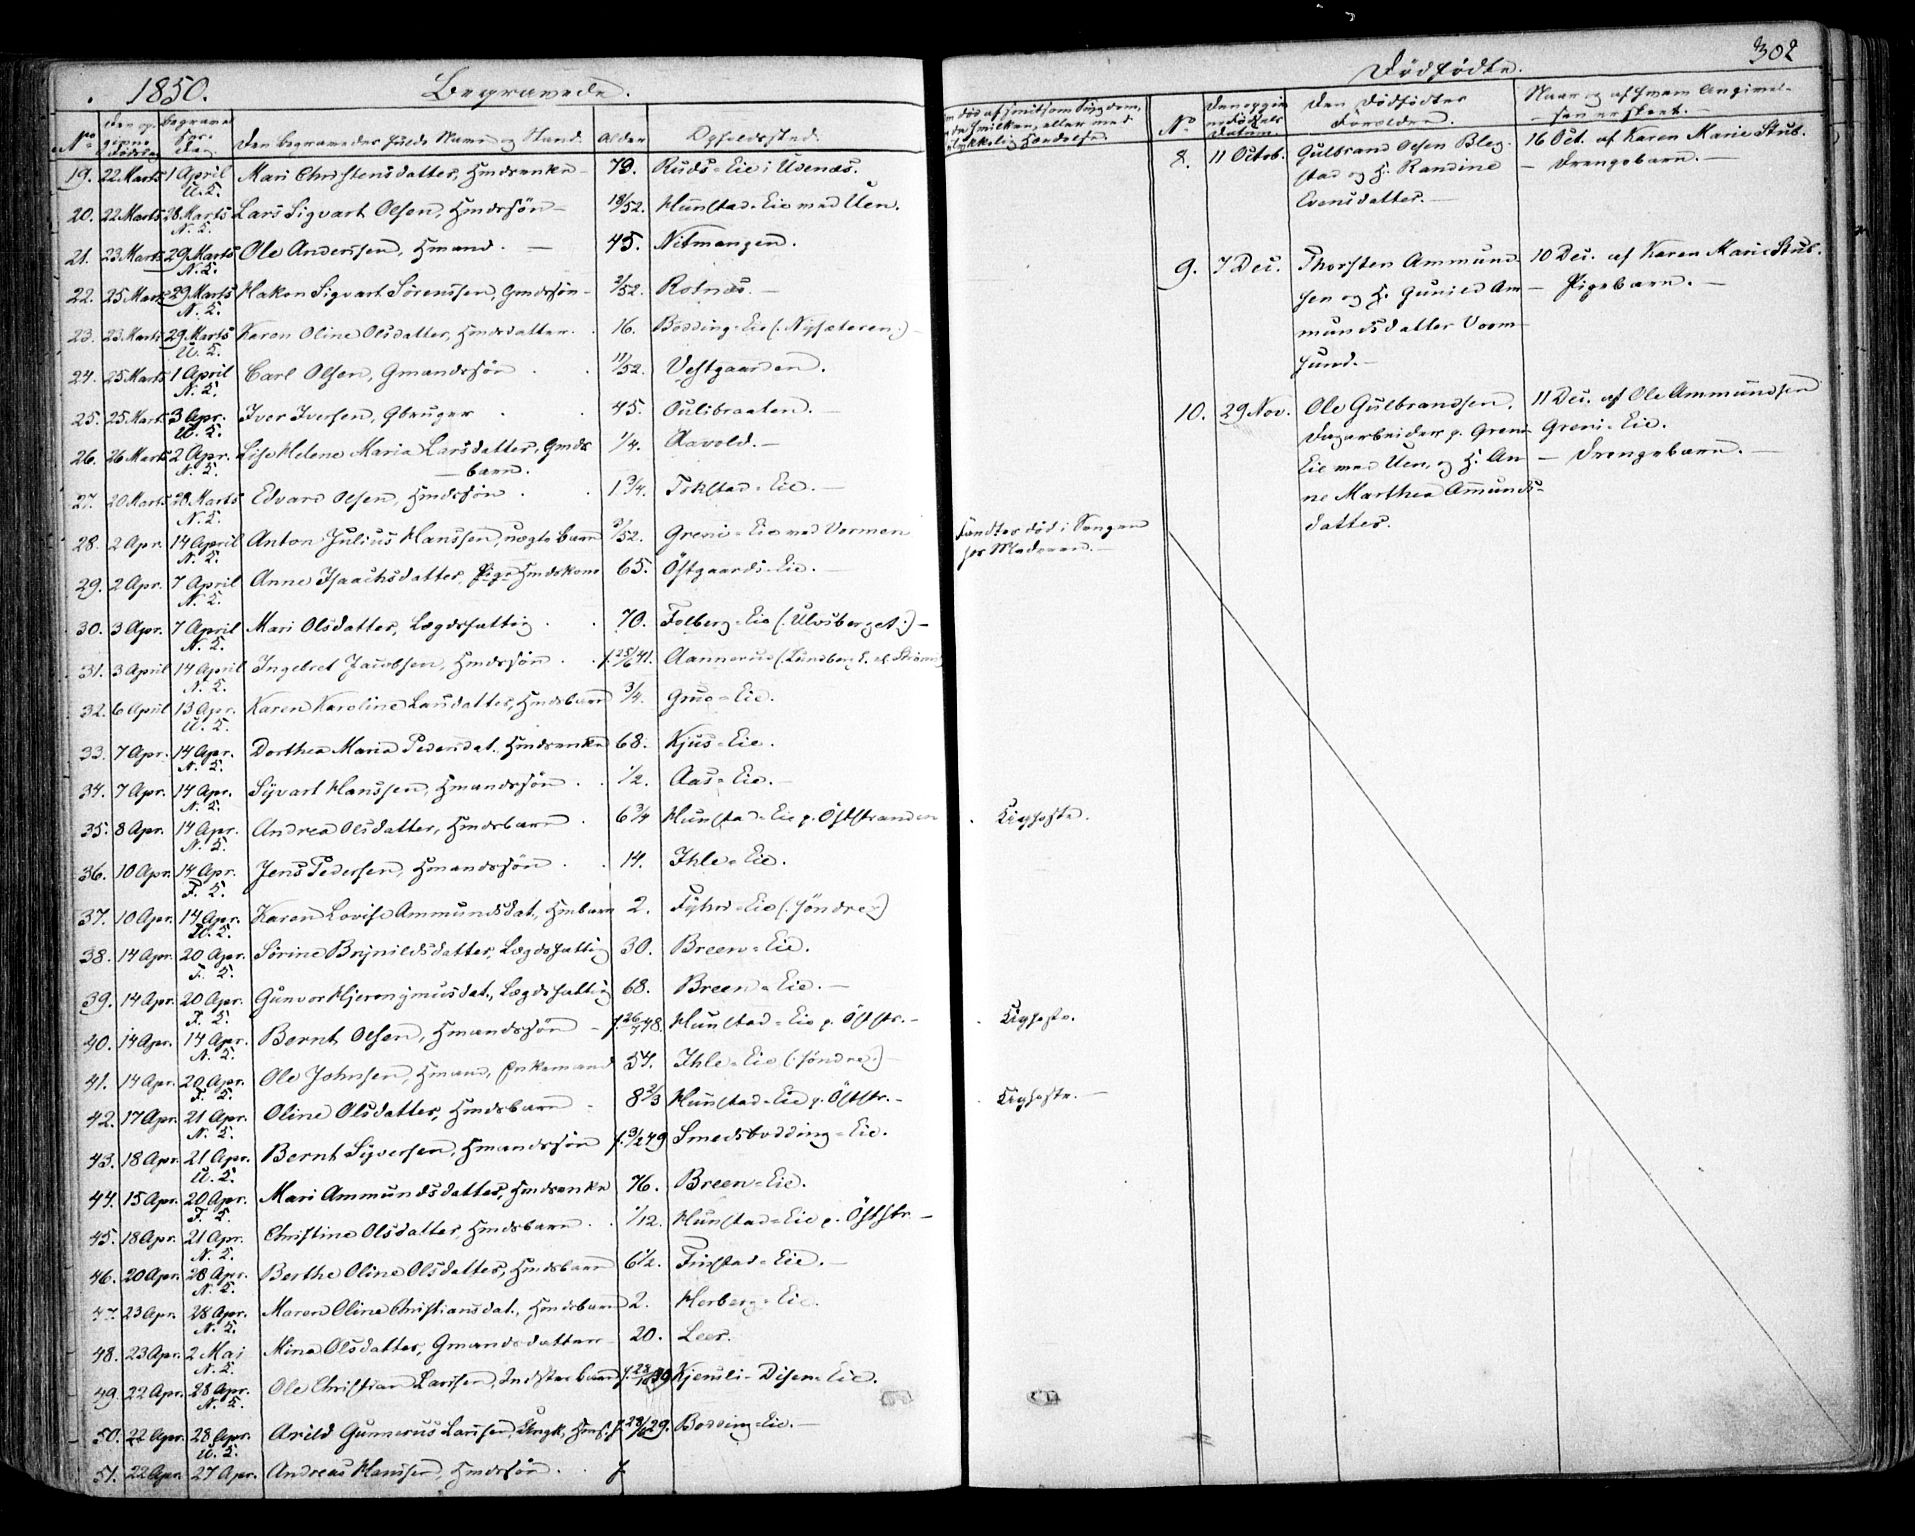 302
1850. Begravede. Dødfødte.
No Begravel Den Begravedes fulde Navn og Stand. Alder. Opholdssted.
19. 22 Marts 1 April Mari Christensdatter, Hmdsenke 79. Ruds-Eie i Udenæs.
U. K.
20. 22 Marts 28 Marts Lars Sigvart Olsen, Hmdsøn 18/52. Hunstad-Eie ved Uen.
N. K.
21. 23 Marts 29 Marts Ole Anderssen, Hmand. 45. Nitmangen.
N. K.
22. 25 Marts 29 Marts Hakon Sigvart Sørenssen, Gmdssøn 2/52. Rotnæs.
N. K.
23. 23 Marts 29 Marts Karen Oline Olsdatter, Hmdsdatter. 16. Bødding-Eie (:Nysæteren:)
U. K.
24. 25 Marts 1 April Carl Olsen, Gmandssøn 11/52. Vestgaarden.
N. K.
25. 25 Marts 3 Apr. Iver Iversen, Gbruger 45. Oulibraaten.
U. K.
26. 26 Marts 2 Apr. Lise Helene Maria Larsdatter, Gmds 1/4. Aavold.
N. K. barn.
27. 20 Marts 28 Marts Edvard Olsen, Hmdssøn 1 3/4. Tokstad-Eie.
N. K.
28. 2 Apr. 14 April Anton Julius Hanssen, uægte Barn /52. Greni-Eie ved Vormen Fandtes død i Sengen
N. K. hos Moderen.
29. 2 Apr. 7 April Anne Isaachsdatter, Hmdskone 65. Østgaards-Eie.
N. K.
30. 3 Apr. 7 April Mari Olsdatter, Lægdsfattig 70. Folberg-Eie (:Ulvsberget:)
N. K.
31. 3 April 14 April Ingebret Jacobsen, Hmdssøn f. 41. Aannerud
N. K.
32. 6 April 13 Apr. Karen Karoline Larsdatter, Hmdsbarn 3/4. Gruo-Eie.
U. K.
33. 7 Apr. 14 Apr. Dorthea Maria Pedersdat. Hmdsenke 68. Kjus-Eie.
N. K.
34. 7 Apr. 14 Apr. Sigvart Hanssen, Hmandssøn 1/2. Aas-Eie.
N. K.
35. 8 Apr. 14 Apr. Andrea Olsdatter, Hmdsbarn 6 3/4 Hunstad-Eie p. Øststranden Kighoste.
N. K.
36. 10 Apr. 14 Apr. Jens Pedersen, Hmandssøn 14. Ihle-Eie.
F. K.
37. 10 Apr. 14 Apr. Karen Lovise Ammundsdat., Hmbarn 2. Eie (:søndre:)
K.
38. 14 Apr. 20 Apr. Sørine Brynildsdatter, Lægdsfattig 30. Breen-Eie.
F. K.
39. 14 Apr. 20 Apr. Gunvor Hjeronymusdat., Lægdsfattig 68. Breen-Eie.
F. K.
40. 14 Apr. 14 Apr. Bernt Olsen, Hmandssøn f. 26/7 48. Hunstad-Eie p. Øststr. Kighoste.
N. K.
41. 14 Apr. 20 Apr. Ole Johnsen, Hmand, Enkemand 54. Ihle-Eie (:søndre:)
F. K.
42. 17 Apr. 21 Apr. Oline Olsdatter, Hmdsbarn 8 2/3 Hunstad-Eie p. Øststr. Kighoste.
N. K.
43. 18 Apr. 21 Apr. Bernt Syversen, Hmandssøn f. 3/2 49 Smedsbødding-Eie.
U. K.
44. 15 Apr. 20 Apr. Mari Ammundsdatter, Hmdsenke 76. Breen-Eie.
F. K.
45. 18 Apr. 21 Apr. Christine Olsdatter, Hmdsbarn 1/12. Hunstad-Eie p. Øststr.
N. K.
46. 20 Apr. 28 Apr. Berthe Oline Olsdatter, Hmdsbarn 6 1/2. Fristad-Eie.
N. K.
47. 23 Apr. 28 Apr. Maren Oline Christiansdat., Hmdsbarn 2. Herberg-Eie.
N. K.
48. 23 Apr. 2 Mai Mina Olsdatter, Gmandsdatter 20. Leer.
N. K.
49. 22 Apr. 28 Apr. Ole Christian Larssen, Inderstbarn f. 39 Disen-Eie.
N. K.
50. 22 Apr. 28 Apr. Arild Gunnerus Larssen, Ungk., f. 29. Bødding-Eie.
U. K.
51. 22 Apr. 27 Apr. Andreas Hanssen, Hmdssøn f.
No Datum. Den Dødfødtes Forældre.
8. 11 Octob. Gulbrand Olsen Bleg- 16 Oct. af Karen Marie Stub.
stad og H. Randine — Drengebarn.
Evensdatter.
9. 7 Dec. Thorsten Ammund- 10 Dec. af Karen Marie Stub.
sen og H. Gunild Am- — Pigebarn.
mundsdatter Vorm-
sund.
10. 29 Nov. Ole Gulbrandsen, 11 Dec. af Ole Ammundsen
Dagarbeider p. Greni Greni-Eie.
Eie ved Uen, og H. An- — Drengebarn.
ne Marthea Amunds-
datter.